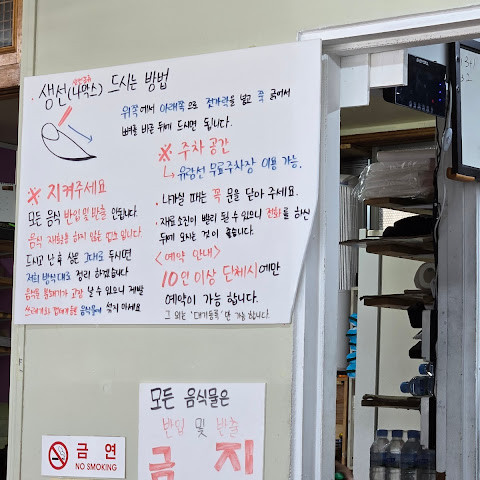 생선(나막스) 드시는 방법
위쪽에서 아래쪽으로 젓가락을 넣고 쭉 긁어서
뼈를 바른 뒤에 드시면 됩니다.
※ 주차 공간
↳ 유람선 무료주차장 이용 가능.
※ 지켜주세요
모든 음식 반입 및 반출 안됩니다.
음식 재활용 하지 않는 업소 입니다
드시고 난 후 상은 그대로 두시면
저희 방식대로 정리 하겠습니다
음식물 분쇄기가 고장 날 수 있으니 제발
쓰레기와 껍데기 등 음식물에 섞지 마세요
· 나가실 때는 꼭 문을 닫아 주세요.
· 재료소진이 빨리 될 수 있으니 전화를 하신
뒤에 오시는 것이 좋습니다.
<예약 안내>
10인 이상 단체시에만
예약이 가능 합니다.
그 외는 '대기등록'만 가능 합니다.
모든 음식물은
반입 및 반출
금 지
금 연
NO SMOKING